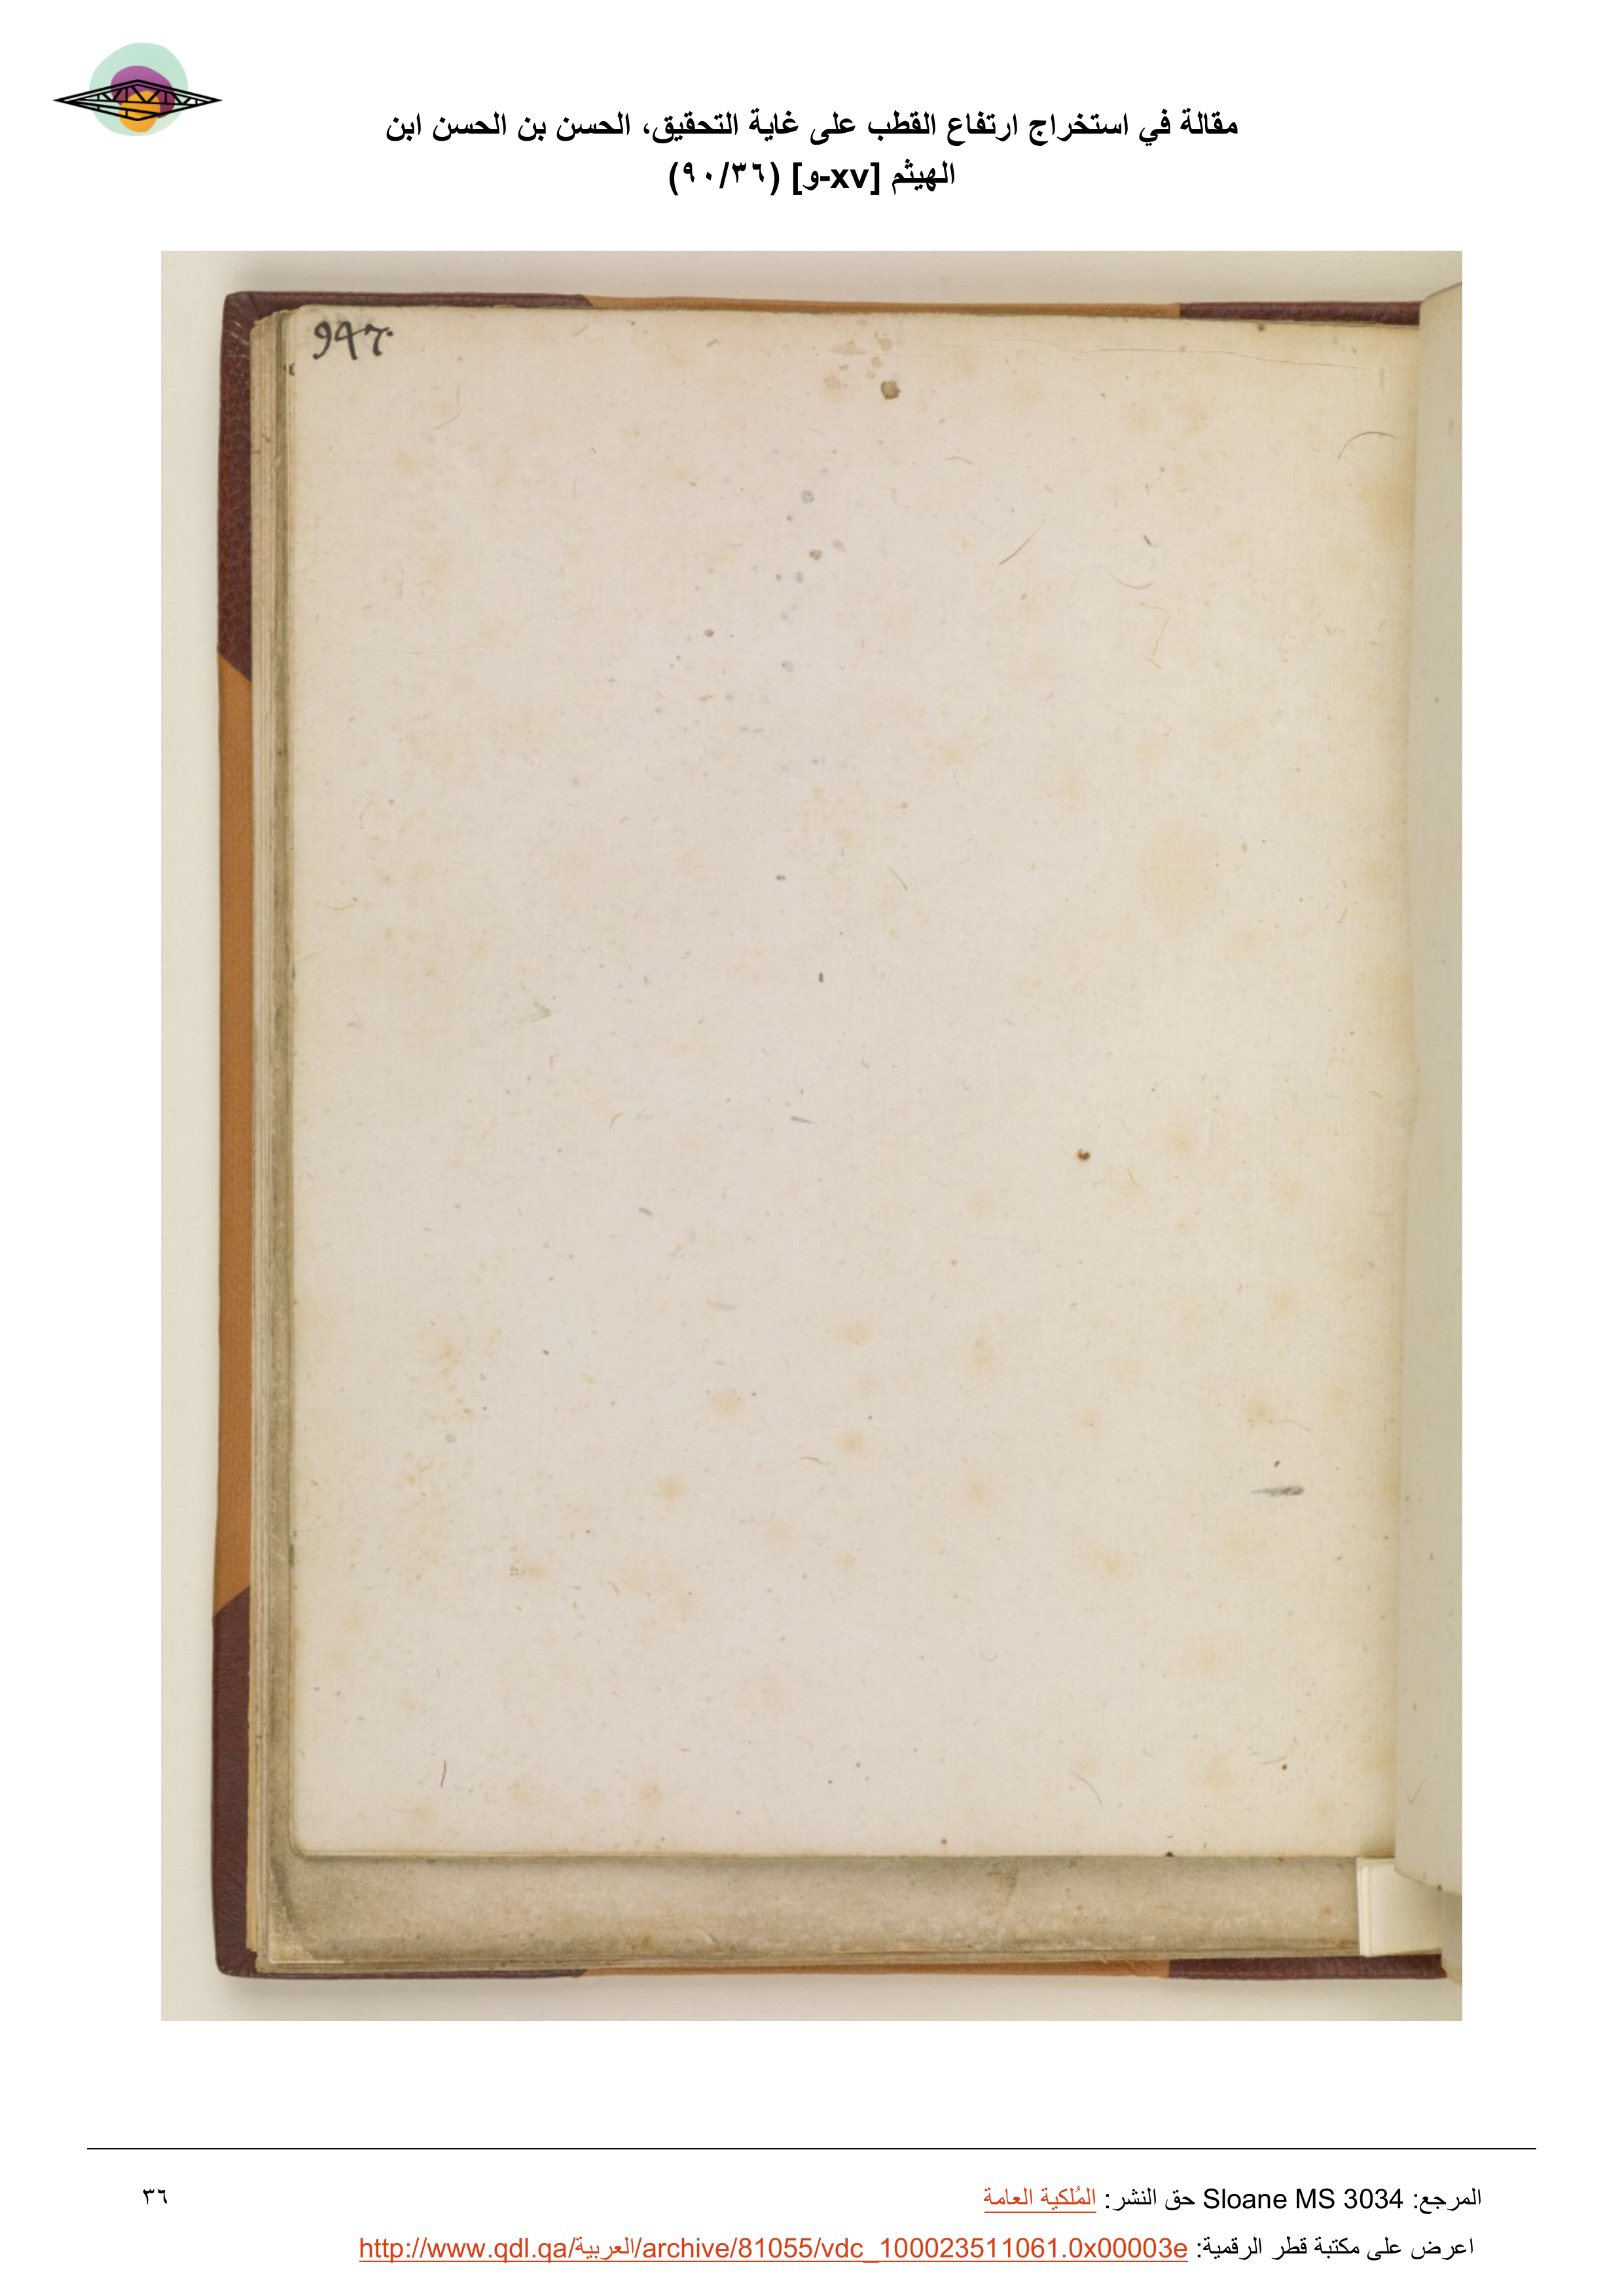 مقالة في استخراج ارتفاع القطب على غاية التحقيق، الحسن بن الحسن ابن
الهيثم [xv-و] (٩٠/٣٦)
947.
المرجع: Sloane MS 3034 حق النشر: المُلكية العامة
٣٦
اعرض على مكتبة قطر الرقمية: http://www.qdl.qa/العربية/archive/81055/vdc_100023511061.0x00003e